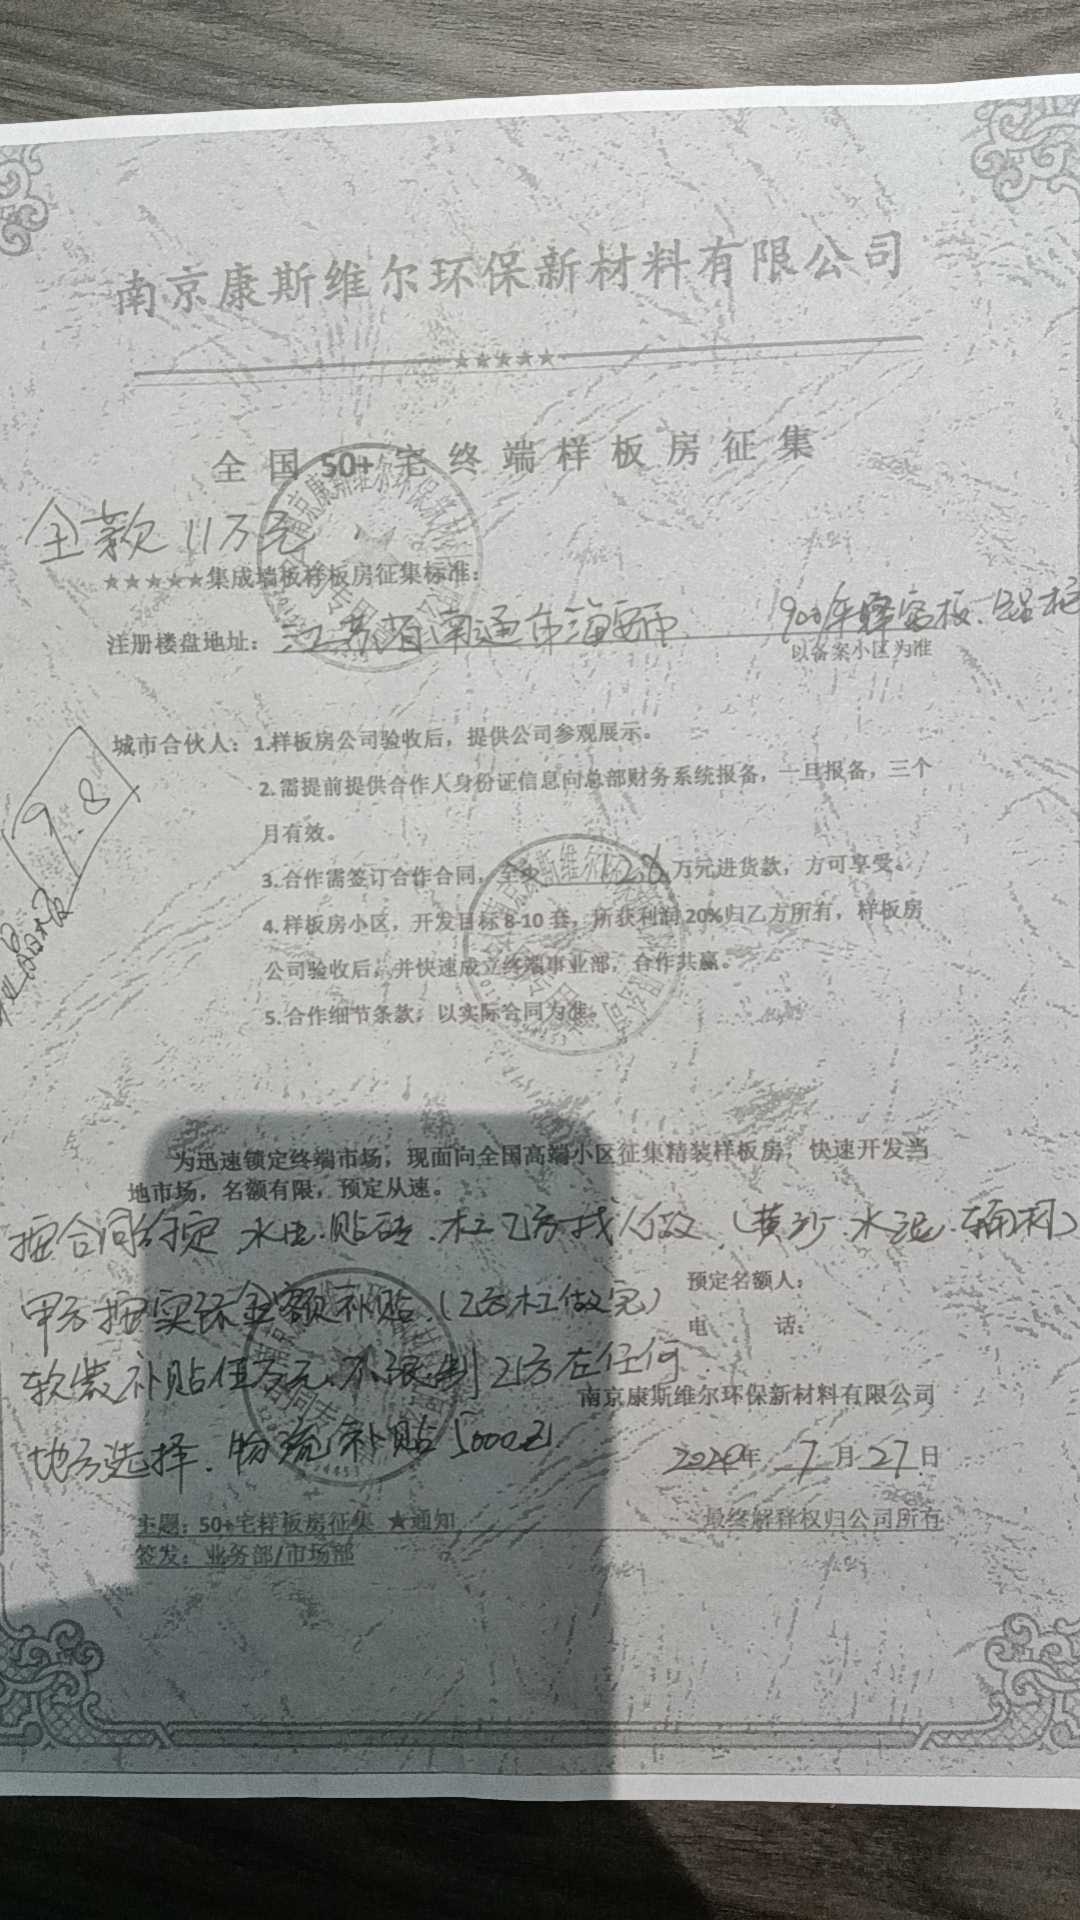 南京康斯维尔环保新材料有限公司
★★★★★
全国50+宅终端样板房征集
全款11万元
★★★★★集成墙板样板房征集标准:
注册楼盘地址: 江苏省南通市海安市 900 蜂窝板.
以备案小区为准
城市合伙人: 1.样板房公司验收后，提供公司参观展示。
9.8
2.需提前提供合作人身份证信息向总部财务系统报备，一旦报备，三个
月有效。
3.合作需签订合作合同，至少 12.6 万元进货款，方可享受。
4.样板房小区，开发目标8-10套，所获利润20%归乙方所有，样板房
公司验收后，并快速成立终端事业部，合作共赢。
5.合作细节条款，以实际合同为准。
为迅速锁定终端市场，现面向全国高端小区征集精装样板房，快速开发当
地市场，名额有限，预定从速。
按合同约定 水电.贴砖.木工乙方找人做.(黄沙.水泥.辅材)
预定名额人:
甲方按实际金额补贴(乙方木工做完)
电 话:
软装补贴伍万元.不限制乙方在任何
南京康斯维尔环保新材料有限公司
地方选择.物流补贴5000元
年 7月27日
主题: 50+宅样板房征集 ★通知 最终解释权归公司所有
签发: 业务部/市场部